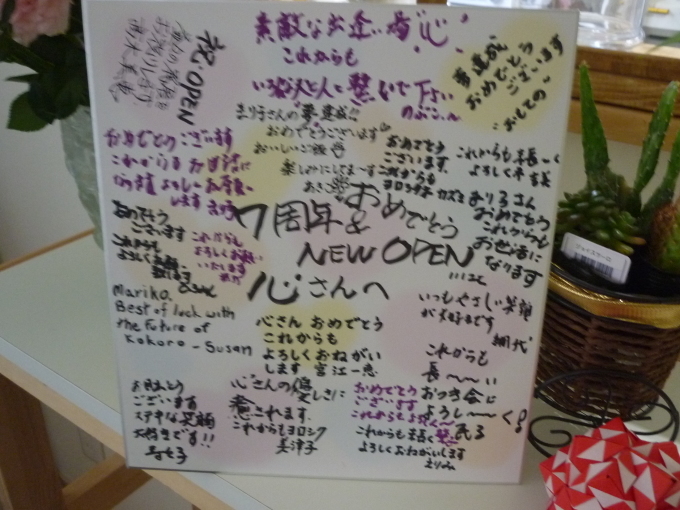 素敵なお出逢い㊗"心"
これからも
いろんな人と人を繋いで下さい
のぶこ
祝 OPEN
夢達成
おめでとう
ございます
まり子さんの"夢"達成!!
おめでとうございます
おいしいご飯
楽しみにしてま〜す
おめでとう
ございます。
これからも
ヨロシクネ カズミ
これからも長〜く
よろしくネ
まりこさん
おめでとう
これからも
お世話に
なります
おめでとうございます
これからも
よろしくお願い
します
おめでとう
ございます
これからも
よろしくお願い
致します
これからも
よろしくお願い
いたします
7周年&おめでとう
NEW OPEN
心さんへ
いつもやさしい笑顔
が大好きです
細代
Mariko.
Best of luck with
the future of
Kokoro - Susan
心さん おめでとう
これからも
よろしくおねがい
します 宮江一恵
これからも
長〜〜い
おつき合に
よろし〜〜く!
お目出とう
ございます
ステキな笑顔
大好きです!!
心さんの優しさに
癒されます。
これからもヨロシク
美津子
おめでとう
ございます
これからもよろしく
これからも末長く
よろしくおねがいします
えりみ
ジョイスツール